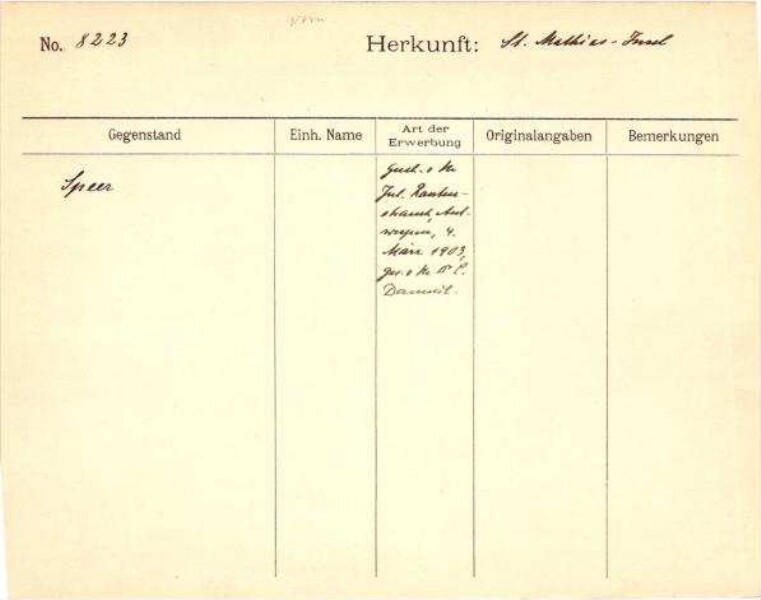 No. 8223
Herkunft: St. Mathias-Insel
Gegenstand
Einh. Name
Art der Erwerbung
Originalangaben
Bemerkungen
Speer
Jul. Rauten-
strauch, Ant-
werpen, 4.
März 1903,